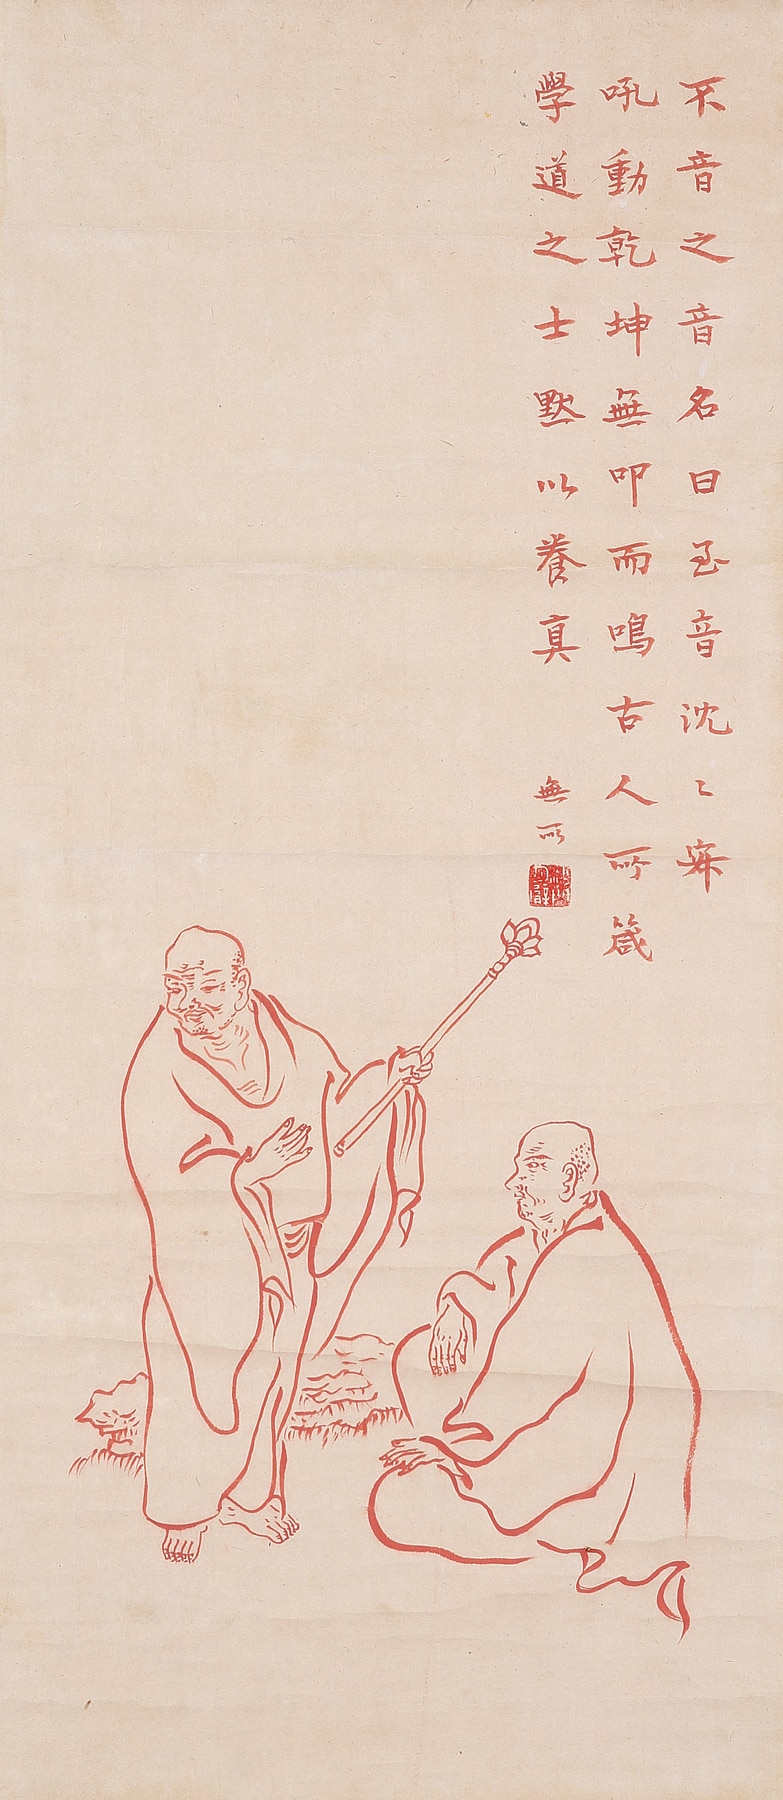 不音之音名曰至音沈〻寂
吼動乾坤無叩而鳴古人所箴
學道之士默以養真
無所